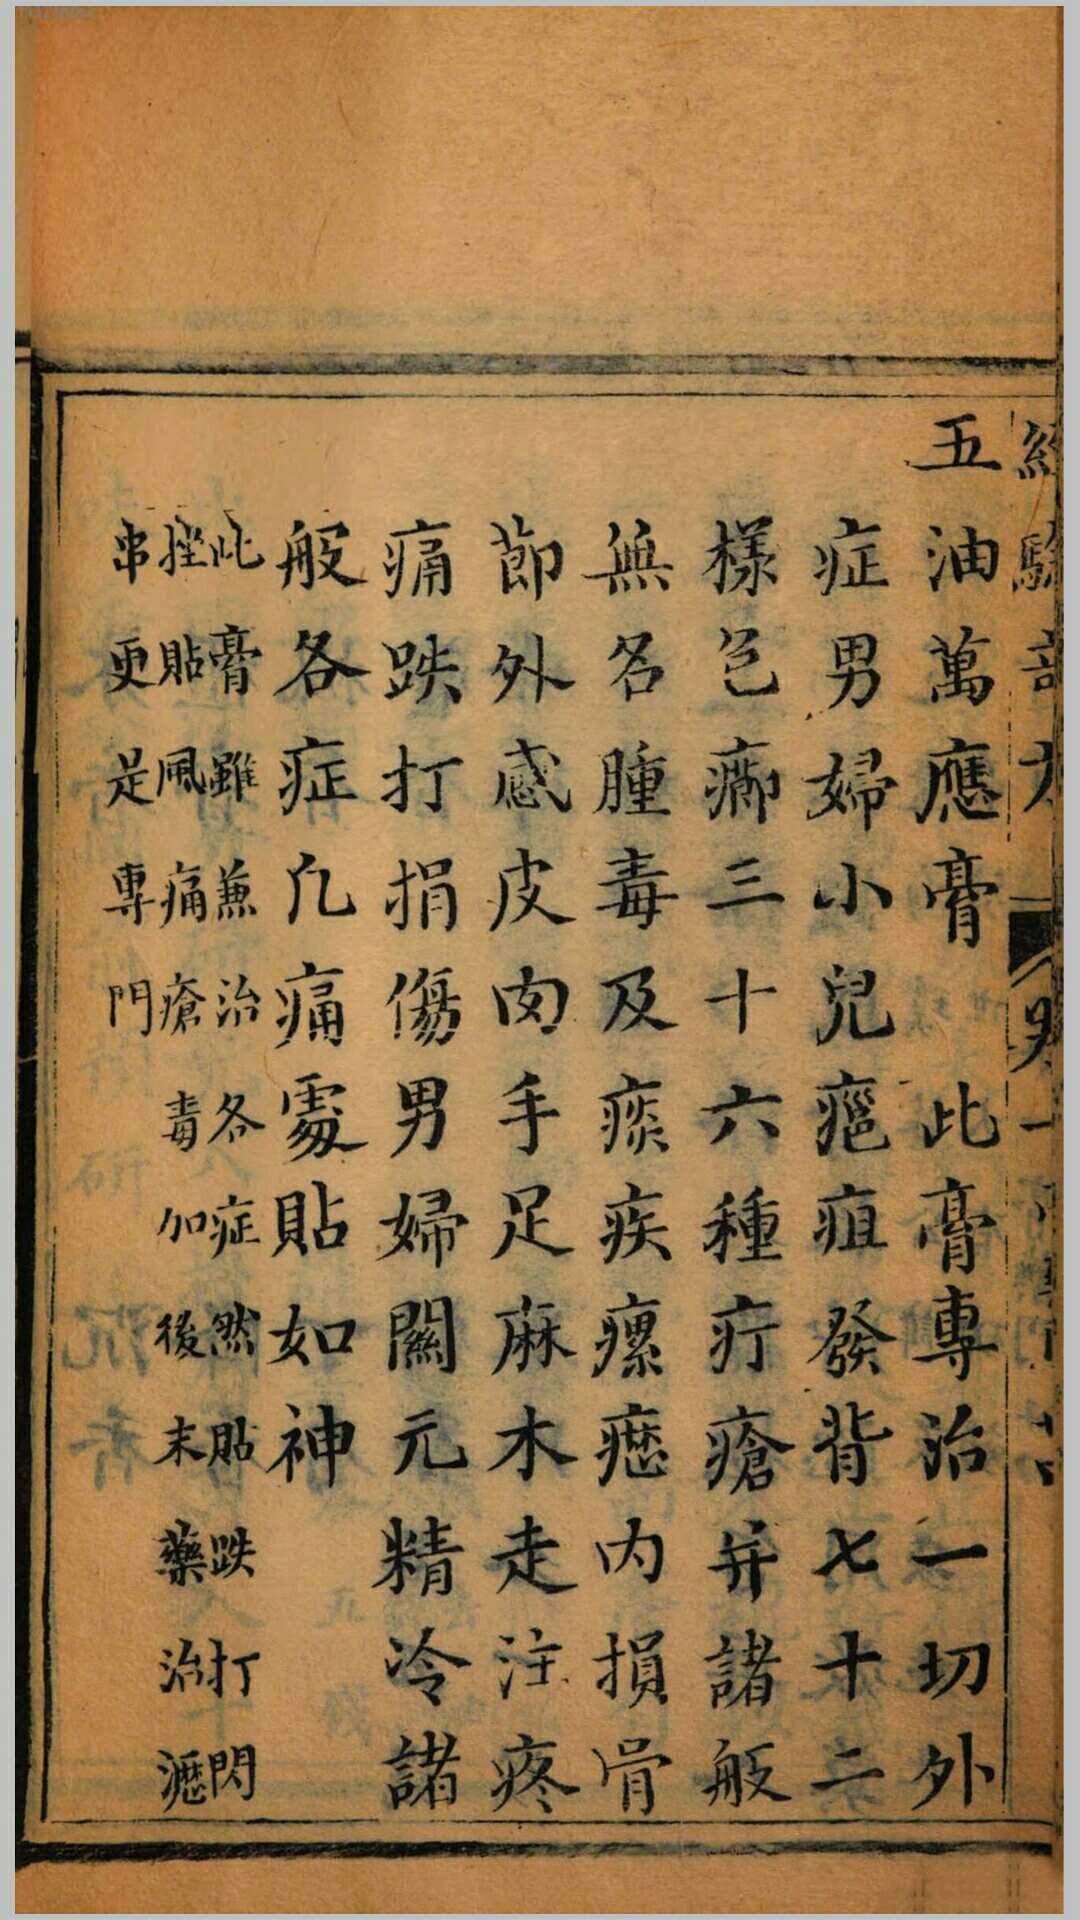 五油萬應膏 此膏專治一切外
症男婦小兒癍疽發背七十二
樣邑癤三十六種疔瘡并諸般
無名腫毒及痰疾瘰癧內損骨
節外感皮肉手足麻木走注疼
痛跌打捐傷男婦關元精冷諸
般各症凢痛處貼如神
此膏雖兼治各症然貼跌打閃
挫貼風痛瘡毒加後末藥治瀝
串更是專門
經驗